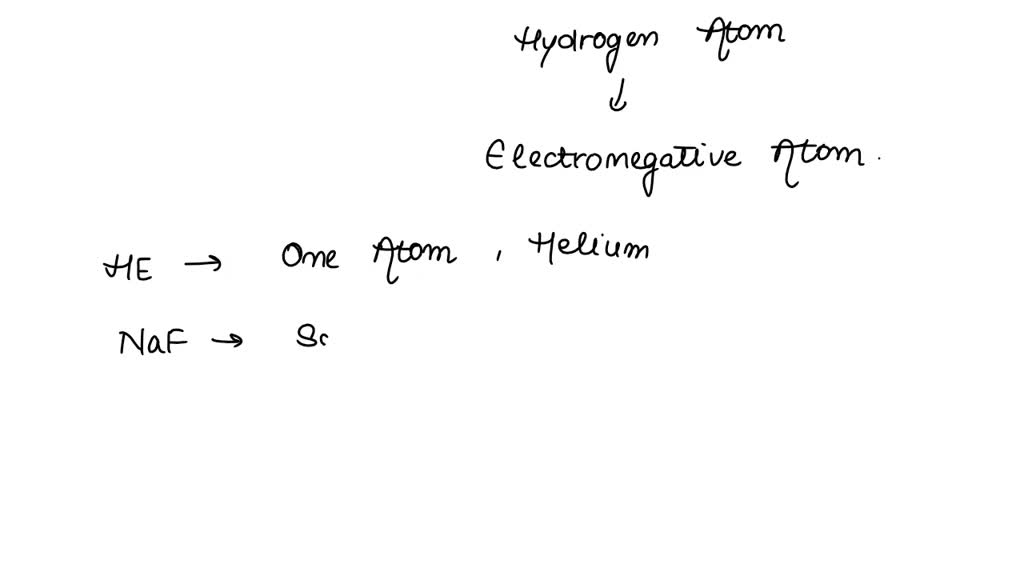 Hydrogen Atom
↓
Electronegative Atom.
HE → One Atom, Helium
NaF → So